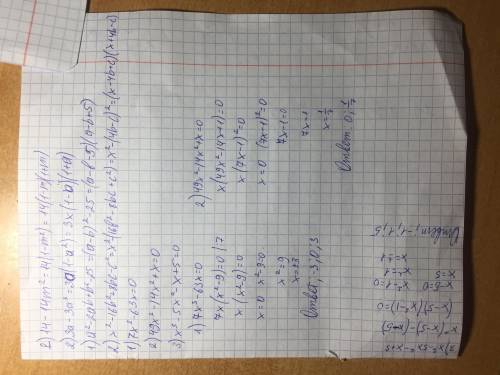 2) 14-14m²=14(1-m²)=14(1-m)(1+m)
2) 3a-3a³=3a(1-a²)=3a(1-a)(1+a)
1) a²-2ab+b²-25=(a-b)²-25=(a-b-5)(a-b+5)
2) x²-16b²+8bc-c²=x²-(16b²-8bc+c²)=x²-(4b-c)²=(x-4b+c)(x+4b-c)
1) 7x³-63x=0
2) 49x³-14x²+x=0
3) x³-5x²-x+5=0
1) 7x³-63x=0
7x(x²-9)=0 | 7
x(x²-9)=0
x=0 x²-9=0
x²=9
x=±3
Ответ: -3; 0; 3
2) 49x³-14x²+x=0
x(49x²-14x+1)=0
x(7x-1)²=0
x=0 (7x-1)²=0
7x-1=0
7x=1
x=1/7
Ответ: 0; 1/7
3) x³-5x²-x+5
x²(x-5)-(x-5)
(x-5)(x²-1)=0
x-5=0 x²-1=0
x=5 x²=1
x=±1
Ответ: -1; 1; 5